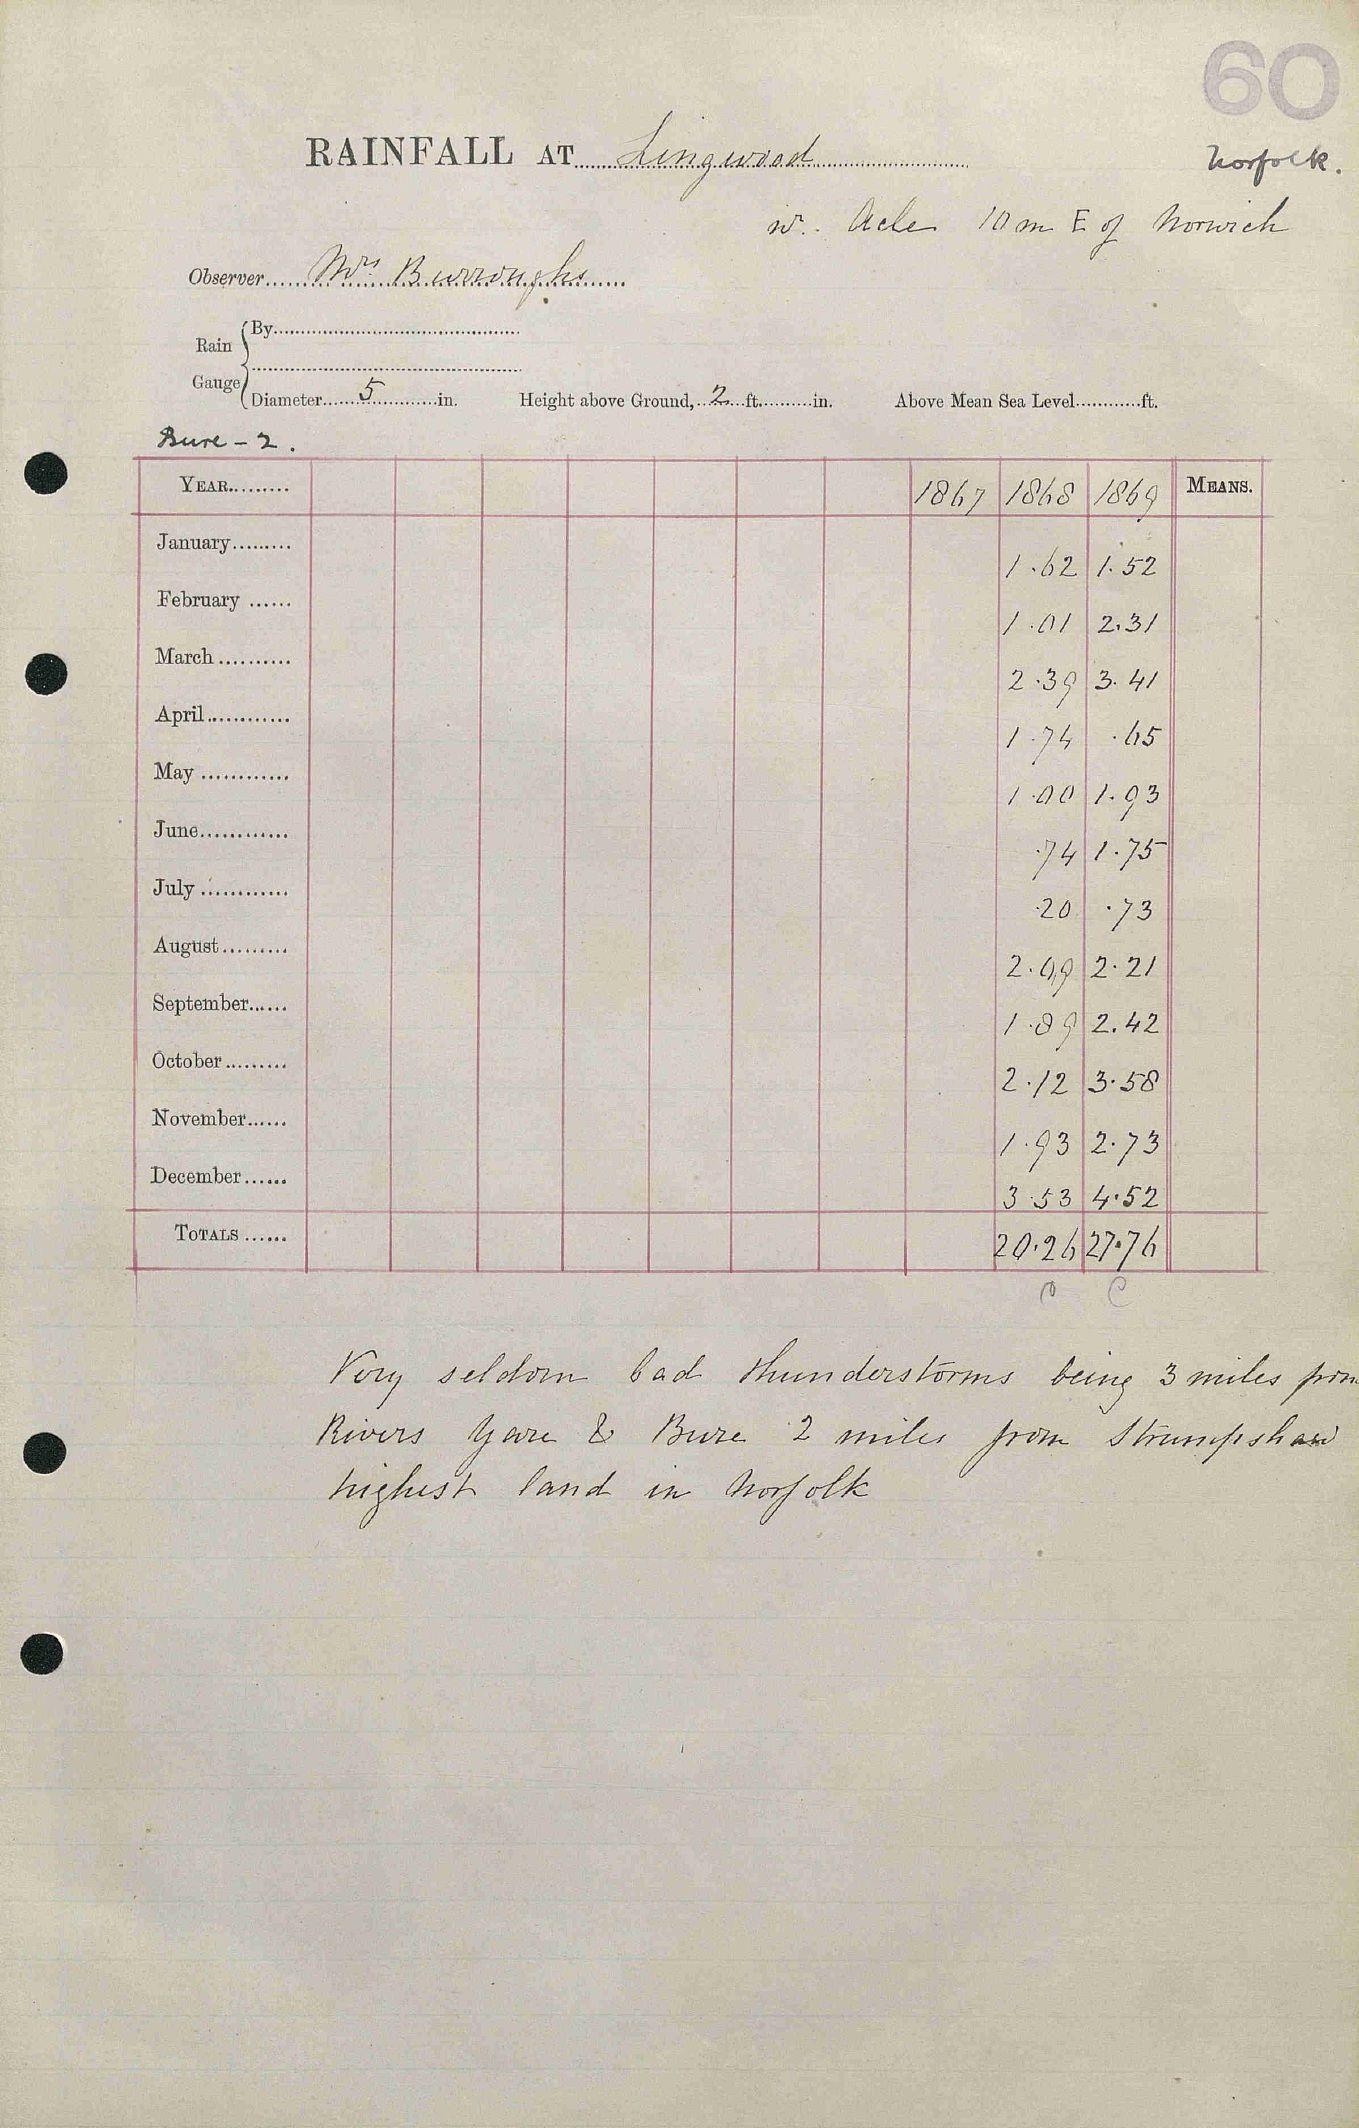 60
RAINFALL AT Lingwood
Norfolk.
nr. Acle 10 m E of Norwich
Observer Mrs Burroughs
Rain Gauge
By
Diameter 5 in. Height above Ground, 2 ft. in. Above Mean Sea Level ft.
Bure - 2.
YEAR 1867 1868 1869 MEANS.
January 1.62 1.52
February 1.01 2.31
March 2.39 3.41
April 1.74 .65
May 1.00 1.93
June .74 1.75
July .20 .73
August 2.09 2.21
September 1.89 2.42
October 2.12 3.58
November 1.93 2.73
December 3.53 4.52
TOTALS 20.26 27.76
C C
Very seldom bad thunderstorms being 3 miles from
Rivers Yare & Bure 2 miles from Strumpshaw
highest land in Norfolk